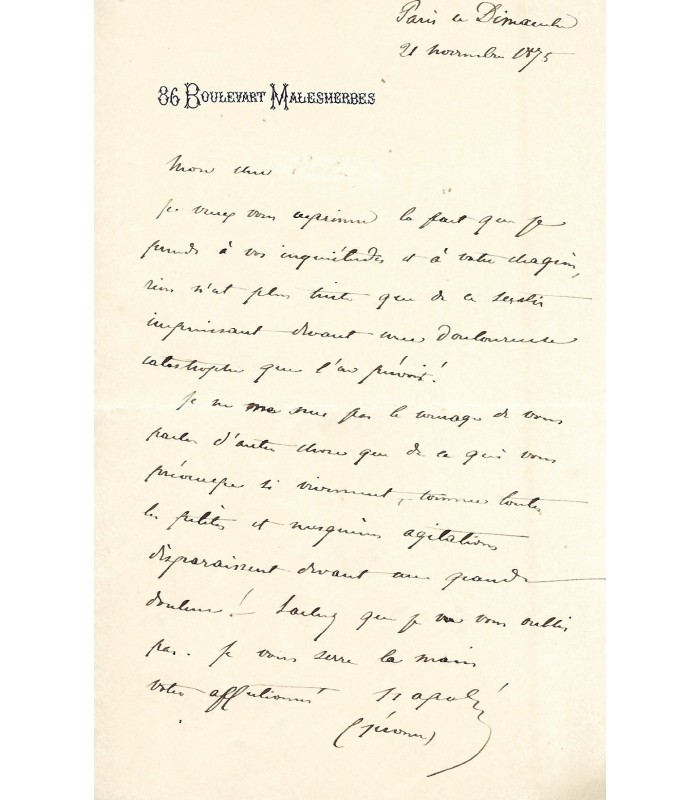 Paris ce Dimanche
21 novembre 1875
86 BOULEVART MALESHERBES
Mon cher
je veux vous exprimer la part que je
prends à vos inquiétudes et à votre chagrin,
rien n'est plus triste que de se sentir
impuissant devant une douloureuse
catastrophe que l'on prévoit!
Je ne me sens pas le courage de vous
parler d'autre chose que de ce qui vous
préoccupe si vivement, comme toutes
les petites et mesquines agitations
disparaissent devant une grande
douleur! Sachez que je ne vous oublie
pas. Je vous serre la main
votre affectionné Napoléon
(Jérome)